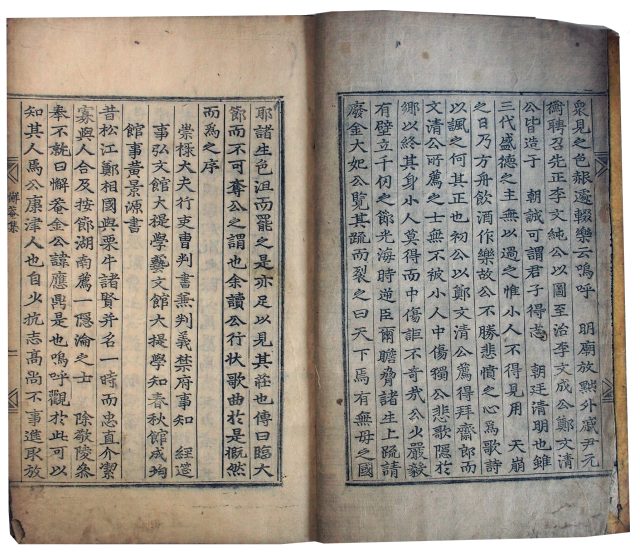 衆見之色赧遂輟樂云嗚呼 明廟放黜外戚尹元
衡聘召先正李文純公以圖至治李文成公鄭文清
公皆造于 朝誠可謂君子得志 朝廷清明也雖
三代盛德之主無以過之惟小人不得見用 天崩
之日乃方舟飮酒作樂故公不勝悲憤之心爲歌詩
以諷之何其正也初公以鄭文清公薦得拜齋郎而
文清公所薦之士無不被小人中傷獨公悲歌隱於
鄉以終其身小人莫得而中傷詎不奇哉公少嚴毅
有壁立千仞之節光海時逆臣爾瞻脅諸生上疏請
廢金大妃公覽其疏而裂之曰天下焉有無母之國
耶諸生色沮而罷之是亦足以見其莊也傳曰臨大
節而不可奪公之謂也余讀公行狀歌曲於是慨然
而爲之序
崇祿大夫行吏曹判書兼判義禁府事知 經筵
事弘文館大提學藝文館大提學知春秋館成均
館事黃景源書
昔松江鄭相國與栗牛諸賢并名一時而忠直介潔
寡與人合及按節湖南薦一隱淪之士 除敬陵參
奉不就曰懈菴金公諱應鼎是也嗚呼觀於此可以
知其人焉公康津人也自少抗志高尚不事進取放
懈菴集 一